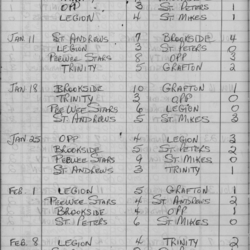 OPP 3 ST. PETERS 1
LEGION 4 ST. MIKES 1
JAN 11 ST. ANDREWS 7 BROOKSIDE 4
LEGION 3 ST. PETERS 0
PEEWEE STARS 8 OPP 3
TRINITY 5 GRAFTON 2
JAN 18 BROOKSIDE 10 GRAFTON 1
TRINITY 3 OPP 0
PEEWEE STARS 6 LEGION 0
ST. ANDREWS 5 ST. MIKES 3
JAN 25 OPP 4 LEGION 3
BROOKSIDE 5 ST. PETERS 2
PEEWEE STARS 9 ST. MIKES 0
ST. ANDREWS 3 TRINITY 1
FEB. 1 LEGION 5 GRAFTON 1
PEEWEE STARS 4 ST. ANDREWS 2
BROOKSIDE 4 OPP 1
ST. PETERS 6 ST. MIKES 0
FEB. 8 LEGION 4 TRINITY 2